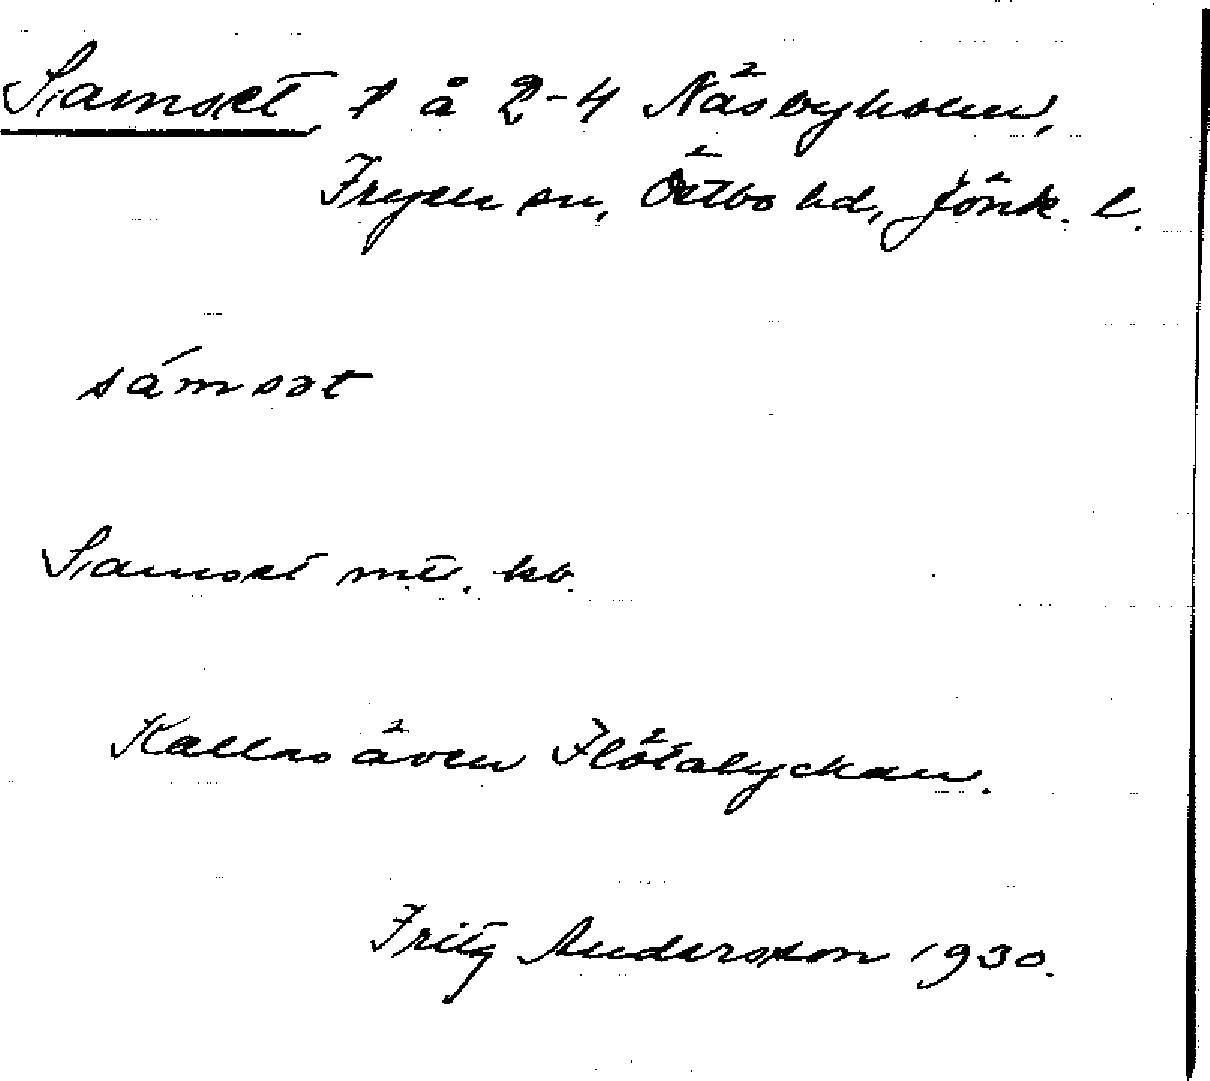 Samset, 1 å 2-4 Näsbyholm,
Fryele sn, Östbo hd, Jönk. l.
sámsət
Samset mt. kb.
Kallas även Flötalyckan.
Fritz Andersson 1930.